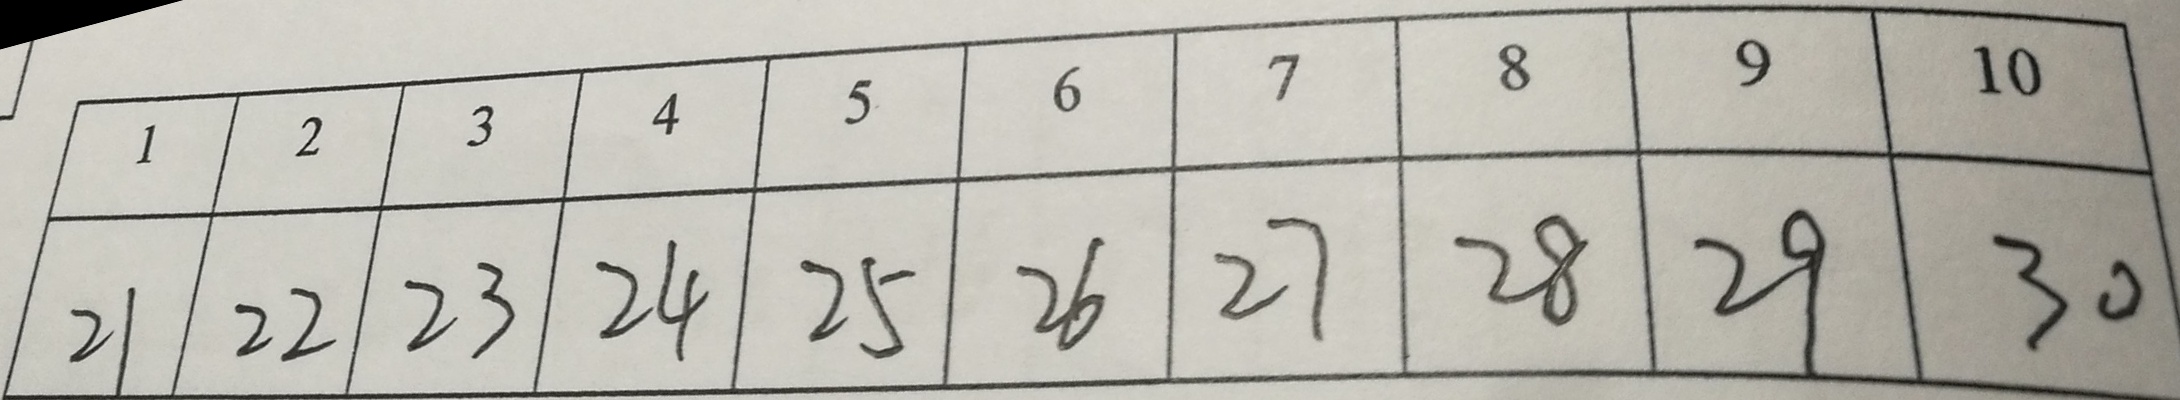 1 2 3 4 5 6 7 8 9 10
21 22 23 24 25 26 27 28 29 30